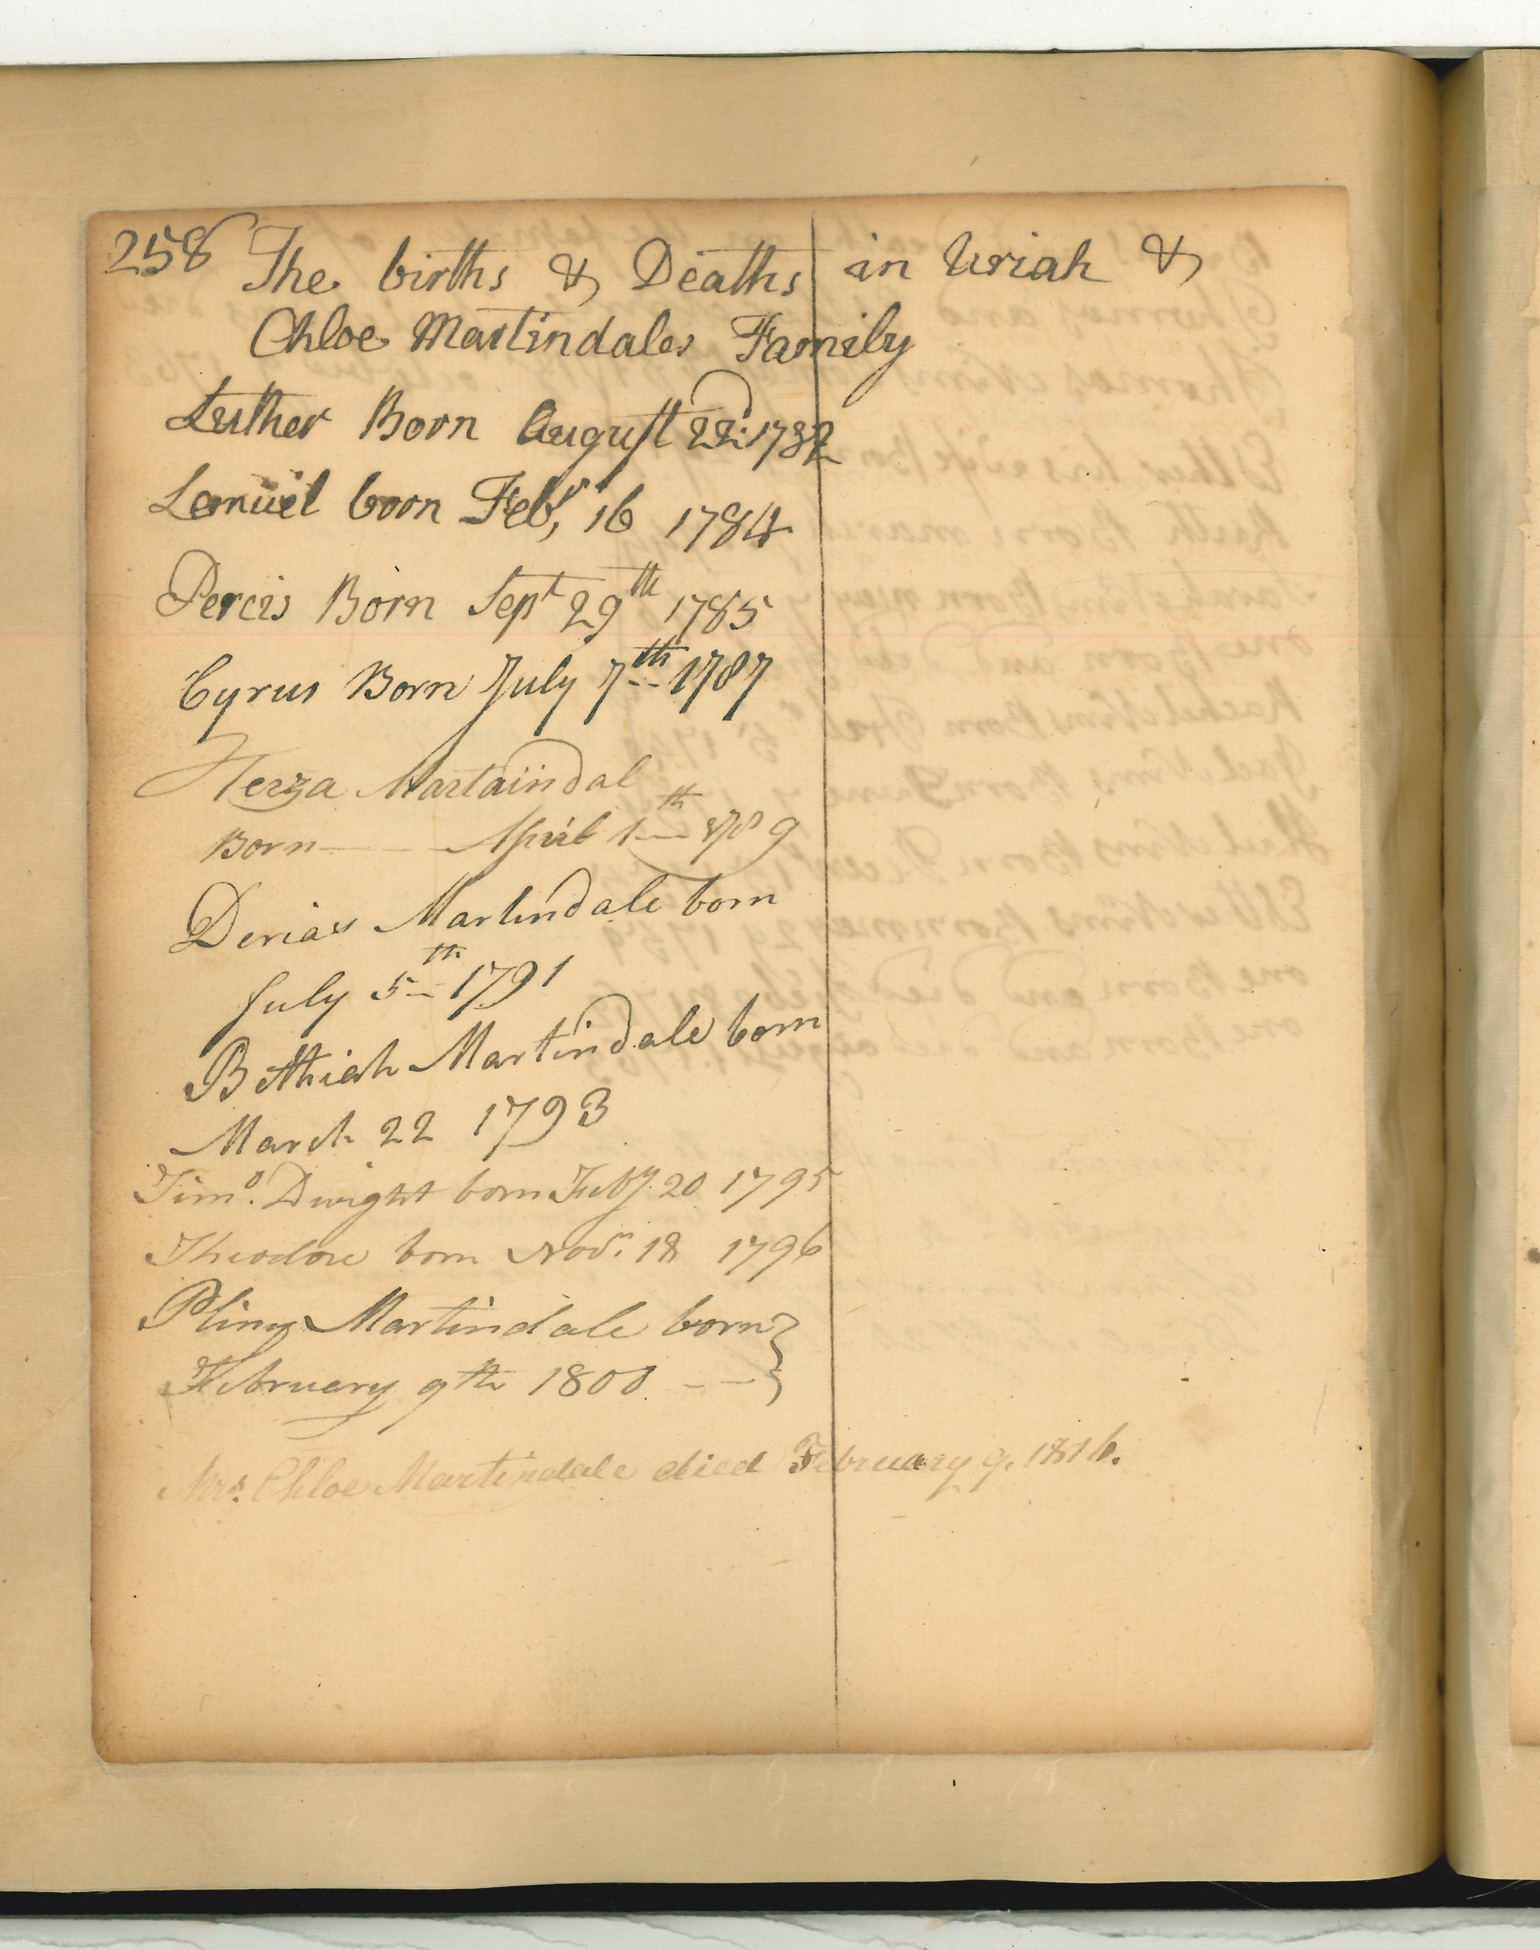 258 The births & Deaths in Uriah &
Chloe Martindales Family
Luther Born August 22d: 1782
Lemuel born Febr, 16 1784
Percis Born Sept 29th 1785
Cyrus Born July 7th 1787
Terza Martaindal
Born April 1th 1789
Derias Martindale born
July 5th 1791
Bethiah Martindale born
March 22 1793
Timo. Dwight born Feby. 20 1795
Theodore born Novr. 18 1796
Pliny Martindale born
February 9th 1800
Mrs. Chloe Martindale died February 9, 1816.